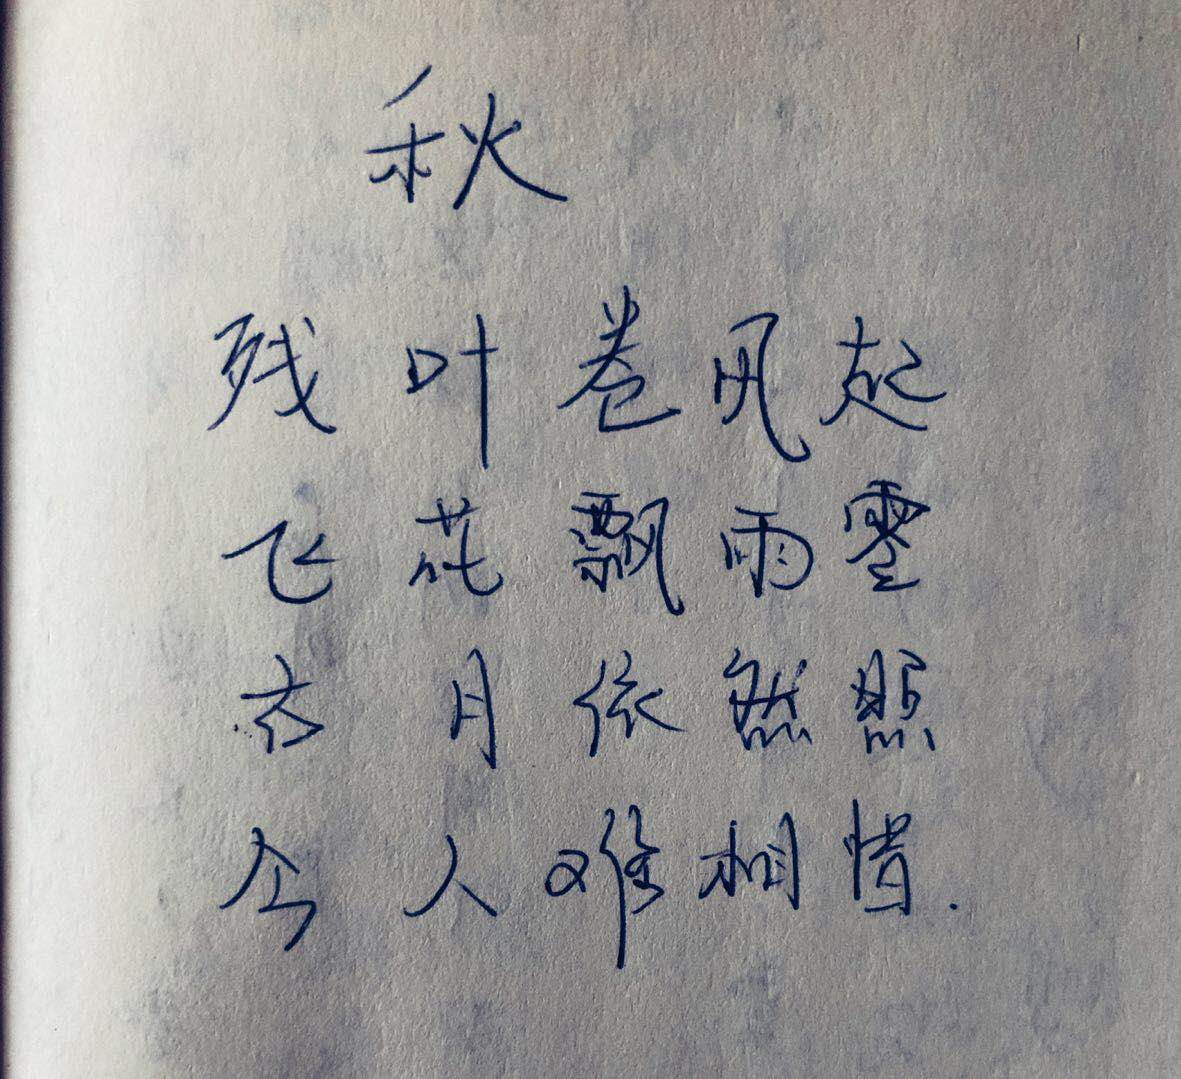 秋
残叶卷风起
飞花飘雨零
古月依然照
今人难相惜.